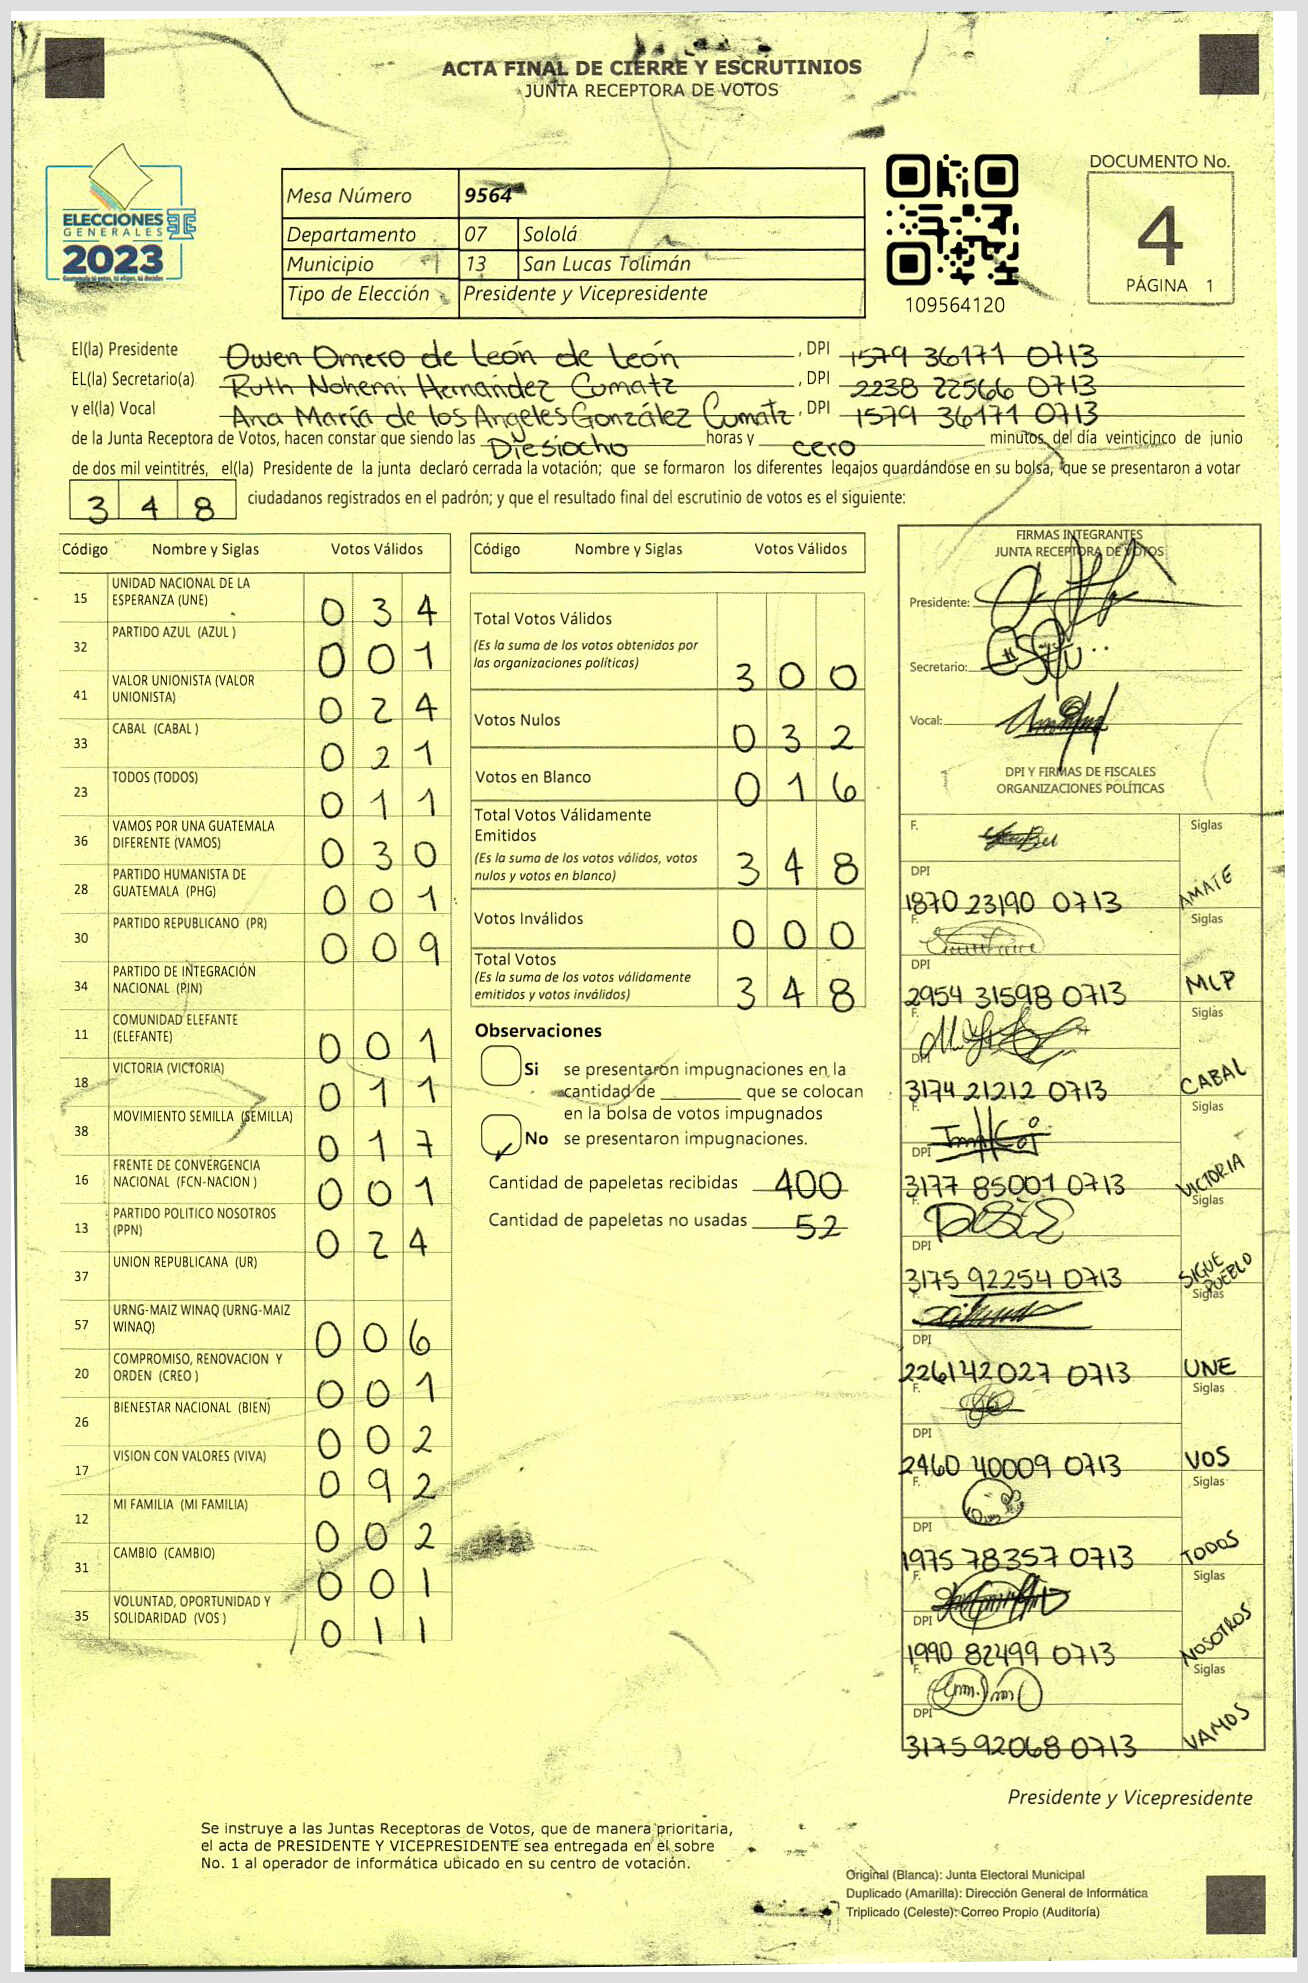 ACTA FINAL DE CIERRE Y ESCRUTINIOS
JUNTA RECEPTORA DE VOTOS
ELECCIONES
GENERALES
2023
Mesa Número 9564
Departamento 07 Sololá
Municipio 13 San Lucas Tolimán
Tipo de Elección Presidente y Vicepresidente
109564120
DOCUMENTO No.
4
PÁGINA 1
El(la) Presidente Owen Omero de León de León, DPI 1579 36171 0713
EL(la) Secretario(a) Ruth Nohemi Hernández Cumatz, DPI 2238 22566 0713
y el(la) Vocal Ana María de los Angeles González Cumatz, DPI 1579 36171 0713
de la Junta Receptora de Votos, hacen constar que siendo las Diesiocho horas y cero minutos del día veinticinco de junio
de dos mil veintitrés, el(la) Presidente de la junta declaró cerrada la votación; que se formaron los diferentes legajos guardándose en su bolsa, que se presentaron a votar
348 ciudadanos registrados en el padrón; y que el resultado final del escrutinio de votos es el siguiente:
Código Nombre y Siglas Votos Válidos
15 UNIDAD NACIONAL DE LA
ESPERANZA (UNE) 034
32 PARTIDO AZUL (AZUL ) 001
41 VALOR UNIONISTA (VALOR
UNIONISTA) 024
33 CABAL (CABAL ) 021
23 TODOS (TODOS) 011
36 VAMOS POR UNA GUATEMALA
DIFERENTE (VAMOS) 030
28 PARTIDO HUMANISTA DE
GUATEMALA (PHG) 001
30 PARTIDO REPUBLICANO (PR) 009
34 PARTIDO DE INTEGRACIÓN
NACIONAL (PIN)
11 COMUNIDAD ELEFANTE
(ELEFANTE) 001
18 VICTORIA (VICTORIA) 011
38 MOVIMIENTO SEMILLA (SEMILLA) 017
16 FRENTE DE CONVERGENCIA
NACIONAL (FCN-NACION ) 001
13 PARTIDO POLITICO NOSOTROS
(PPN) 024
37 UNION REPUBLICANA (UR)
57 URNG-MAIZ WINAQ (URNG-MAIZ
WINAQ) 006
20 COMPROMISO, RENOVACION Y
ORDEN (CREO ) 001
26 BIENESTAR NACIONAL (BIEN) 002
17 VISION CON VALORES (VIVA) 092
12 MI FAMILIA (MI FAMILIA) 002
31 CAMBIO (CAMBIO) 001
35 VOLUNTAD, OPORTUNIDAD Y
SOLIDARIDAD (VOS ) 011
Código Nombre y Siglas Votos Válidos
Total Votos Válidos
(Es la suma de los votos obtenidos por
las organizaciones políticas) 300
Votos Nulos 032
Votos en Blanco 016
Total Votos Válidamente
Emitidos
(Es la suma de los votos válidos, votos
nulos y votos en blanco) 348
Votos Inválidos 000
Total Votos
(Es la suma de los votos válidamente
emitidos y votos inválidos) 348
Observaciones
Si se presentarón impugnaciones en la
cantidad de ________ que se colocan
en la bolsa de votos impugnados
No se presentaron impugnaciones.
Cantidad de papeletas recibidas 400
Cantidad de papeletas no usadas 52
FIRMAS INTEGRANTES
JUNTA RECEPTORA DE VOTOS
Presidente:
Secretario:
Vocal:
DPI Y FIRMAS DE FISCALES
ORGANIZACIONES POLÍTICAS
F. Siglas
DPI
1870 23190 0713 AMATE
F. Siglas
DPI
2954 31598 0713 MLP
F. Siglas
DPI
3174 21212 0713 CABAL
F. Siglas
DPI
3177 85001 0713 VICTORIA
F. Siglas
DPI
3175 92254 0713 SIGUE PUEBLO
F. Siglas
DPI
2261 42027 0713 UNE
F. Siglas
DPI
2460 40009 0713 VOS
F. Siglas
DPI
1975 78357 0713 TODOS
F. Siglas
DPI
1990 82499 0713 NOSOTROS
F. Siglas
DPI
3175 92068 0713 VAMOS
Presidente y Vicepresidente
Se instruye a las Juntas Receptoras de Votos, que de manera prioritaria,
el acta de PRESIDENTE Y VICEPRESIDENTE sea entregada en el sobre
No. 1 al operador de informática ubicado en su centro de votación.
Original (Blanca): Junta Electoral Municipal
Duplicado (Amarilla): Dirección General de Informática
Triplicado (Celeste): Correo Propio (Auditoría)